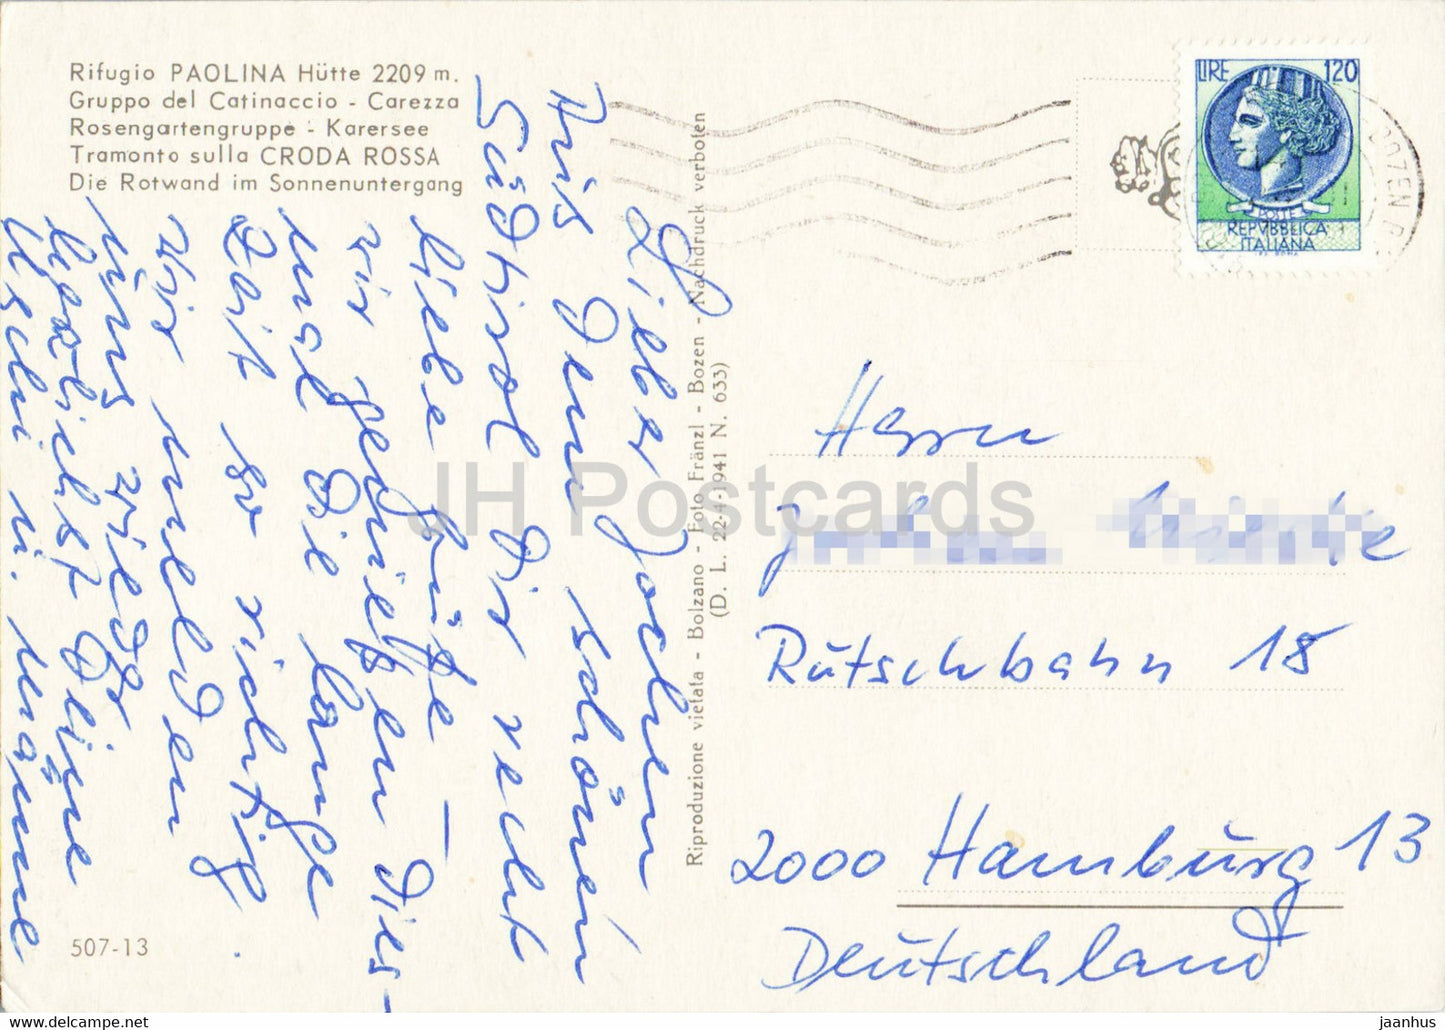 Rifugio PAOLINA Hütte 2209 m.
Gruppo del Catinaccio - Carezza
Rosengartengruppe - Karersee
Tramonto sulla CRODA ROSSA
Die Rotwand im Sonnenuntergang
Lieber Jochen
Aus dem schönen
Südtirol Dir recht
liebe Grüße - Dies-
mal die lange
Zeit so richtig.
Wir melden
uns wieder
herzlichst Deine
Uschi u. Männe
507-13
Riproduzione vietata - Bolzano - Foto Fränzl - Bozen - Nachdruck verboten
(D. L. 22-4-1941 N. 633)
LIRE 120
POSTE
REPVBBLICA
ITALIANA
BOZEN
Herrn
Rutschbahn 18
2000 Hamburg 13
Deutschland
JH Postcards
jaanhus